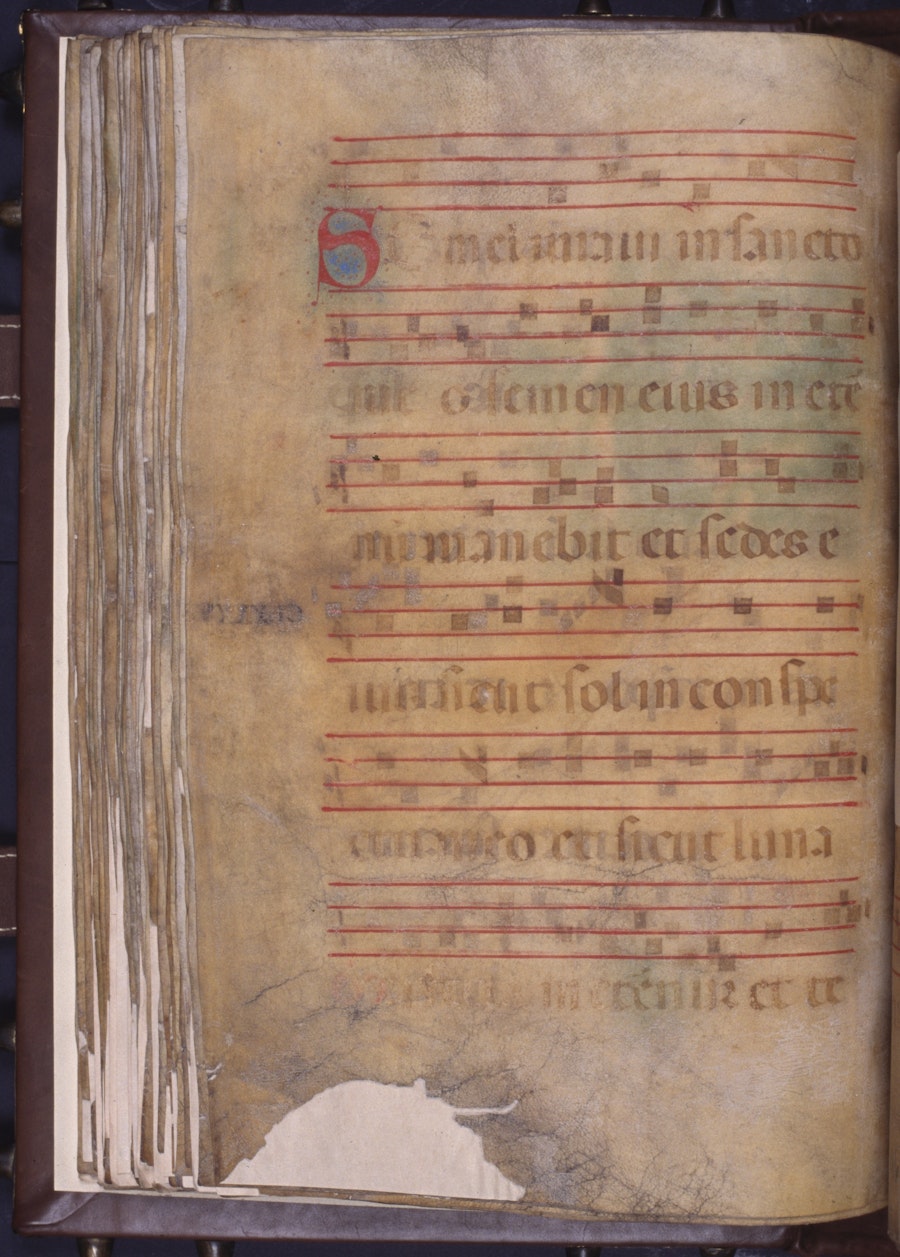 S mel iuraui in sancto
semen eius in etė
num manebit et sedes e
ius sicut sol in conspe
ctu meo et sicut luna
in etérnu et te